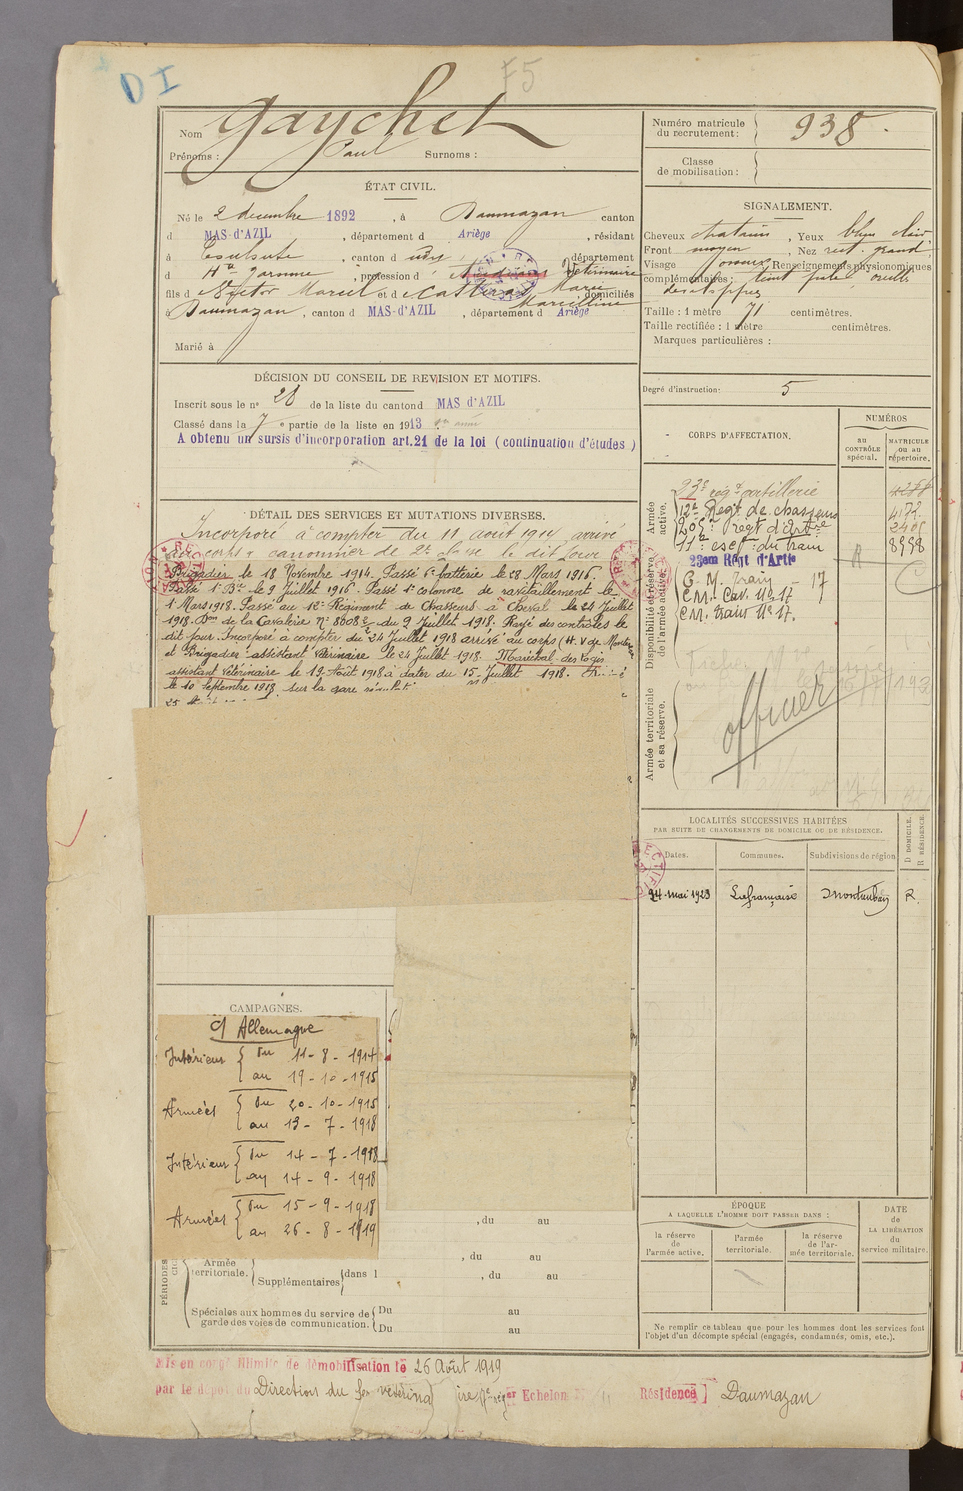 DI
F5
Nom Gaychet
Prénoms : Paul Surnoms :
Numéro matricule du recrutement : 938.
Classe de mobilisation :
ÉTAT CIVIL.
Né le 2 decembre 1892, à Daumazan canton
d MAS-d'AZIL, département d Ariège, résidant
à Toulouse, canton d , département
d Hte Garonne, profession d Vétérinaire
fils d Victor Marcel et d Castéras Marie Marcelline, domiciliés
à Daumazan, canton d MAS-d'AZIL, département d Ariège
Marié à
SIGNALEMENT.
Cheveux chatains, Yeux bleu clair
Front moyen, Nez rect. grand
Visage osseux, Renseignements physionomiques
complémentaires : teint pâle, oreilles
Taille : 1 mètre 71 centimètres.
Taille rectifiée : 1 mètre centimètres.
Marques particulières :
DÉCISION DU CONSEIL DE REVISION ET MOTIFS.
Inscrit sous le n° 28 de la liste du canton d MAS d'AZIL
Classé dans la 7e partie de la liste en 1913
A obtenu un sursis d'incorporation art. 21 de la loi (continuation d'études)
Degré d'instruction : 5
CORPS D'AFFECTATION.
NUMÉROS
au CONTRÔLE spécial.
MATRICULE ou au répertoire.
Armée active.
23e régt artillerie
12e Régt de chasseurs 4172
205e Régt d'Artrie
11e esc. du train 8958
Disponibilité et réserve de l'armée active.
23em Régt d'Artie
C. M. Train - 17
CM. Cav. No 17
CM. train No 17.
Armée territoriale et sa réserve.
officier
DÉTAIL DES SERVICES ET MUTATIONS DIVERSES.
Incorporé à compter du 11 août 1914 arrivé
au corps & canonnier de 2e classe le dit jour
Brigadier le 18 Novembre 1914. Passé 6e batterie le 28 Mars 1916.
Passé 1e Bie le 9 Juillet 1916. Passé 1e colonne de ravitaillement le
1 Mars 1918. Passé au 12e Régiment de Chasseurs à Cheval le 24 Juillet
1918. Don de la Cavalerie No 8008 2/2 du 9 Juillet 1918. Rayé des contrôles le
dit jour. Incorporé à compter du 24 Juillet 1918 arrivé au corps
et Brigadier-assistant Vétérinaire le 24 Juillet 1918. Maréchal-des-Logis
assistant Vétérinaire le 19 Août 1918 à dater du 15 Juillet 1918.
le 10 Septembre 1918 sur la gare
LOCALITÉS SUCCESSIVES HABITÉES
PAR SUITE DE CHANGEMENTS DE DOMICILE OU DE RÉSIDENCE.
Dates. Communes. Subdivisions de région D DOMICILE. R RÉSIDENCE.
24 mai 1923 Lafrançaise Montauban R.
CAMPAGNES.
C/ Allemagne
Intérieur { du 11 - 8 - 1914
au 19 - 10 - 1915
Armées { Du 20 - 10 - 1915
au 13 - 7 - 1918
Intérieur { Du 14 - 7 - 1918
au 14 - 9 - 1918
Armées { Du 15 - 9 - 1918
au 26 - 8 - 1919
, du au
, du au
PÉRIODES
Armée territoriale.
Supplémentaires dans l , du au
Spéciales aux hommes du service de garde des voies de communication.
Du au
Du au
ÉPOQUE
A LAQUELLE L'HOMME DOIT PASSER DANS :
la réserve de l'armée active.
l'armée territoriale.
la réserve de l'armée territoriale.
DATE de LA LIBÉRATION du service militaire.
Ne remplir ce tableau que pour les hommes dont les services font
l'objet d'un décompte spécial (engagés, condamnés, omis, etc.).
Mis en congé illimité de démobilisation le 26 Août 1919
par le dépôt du Direction du Ser vétérinaire Echelon Résidence Daumazan